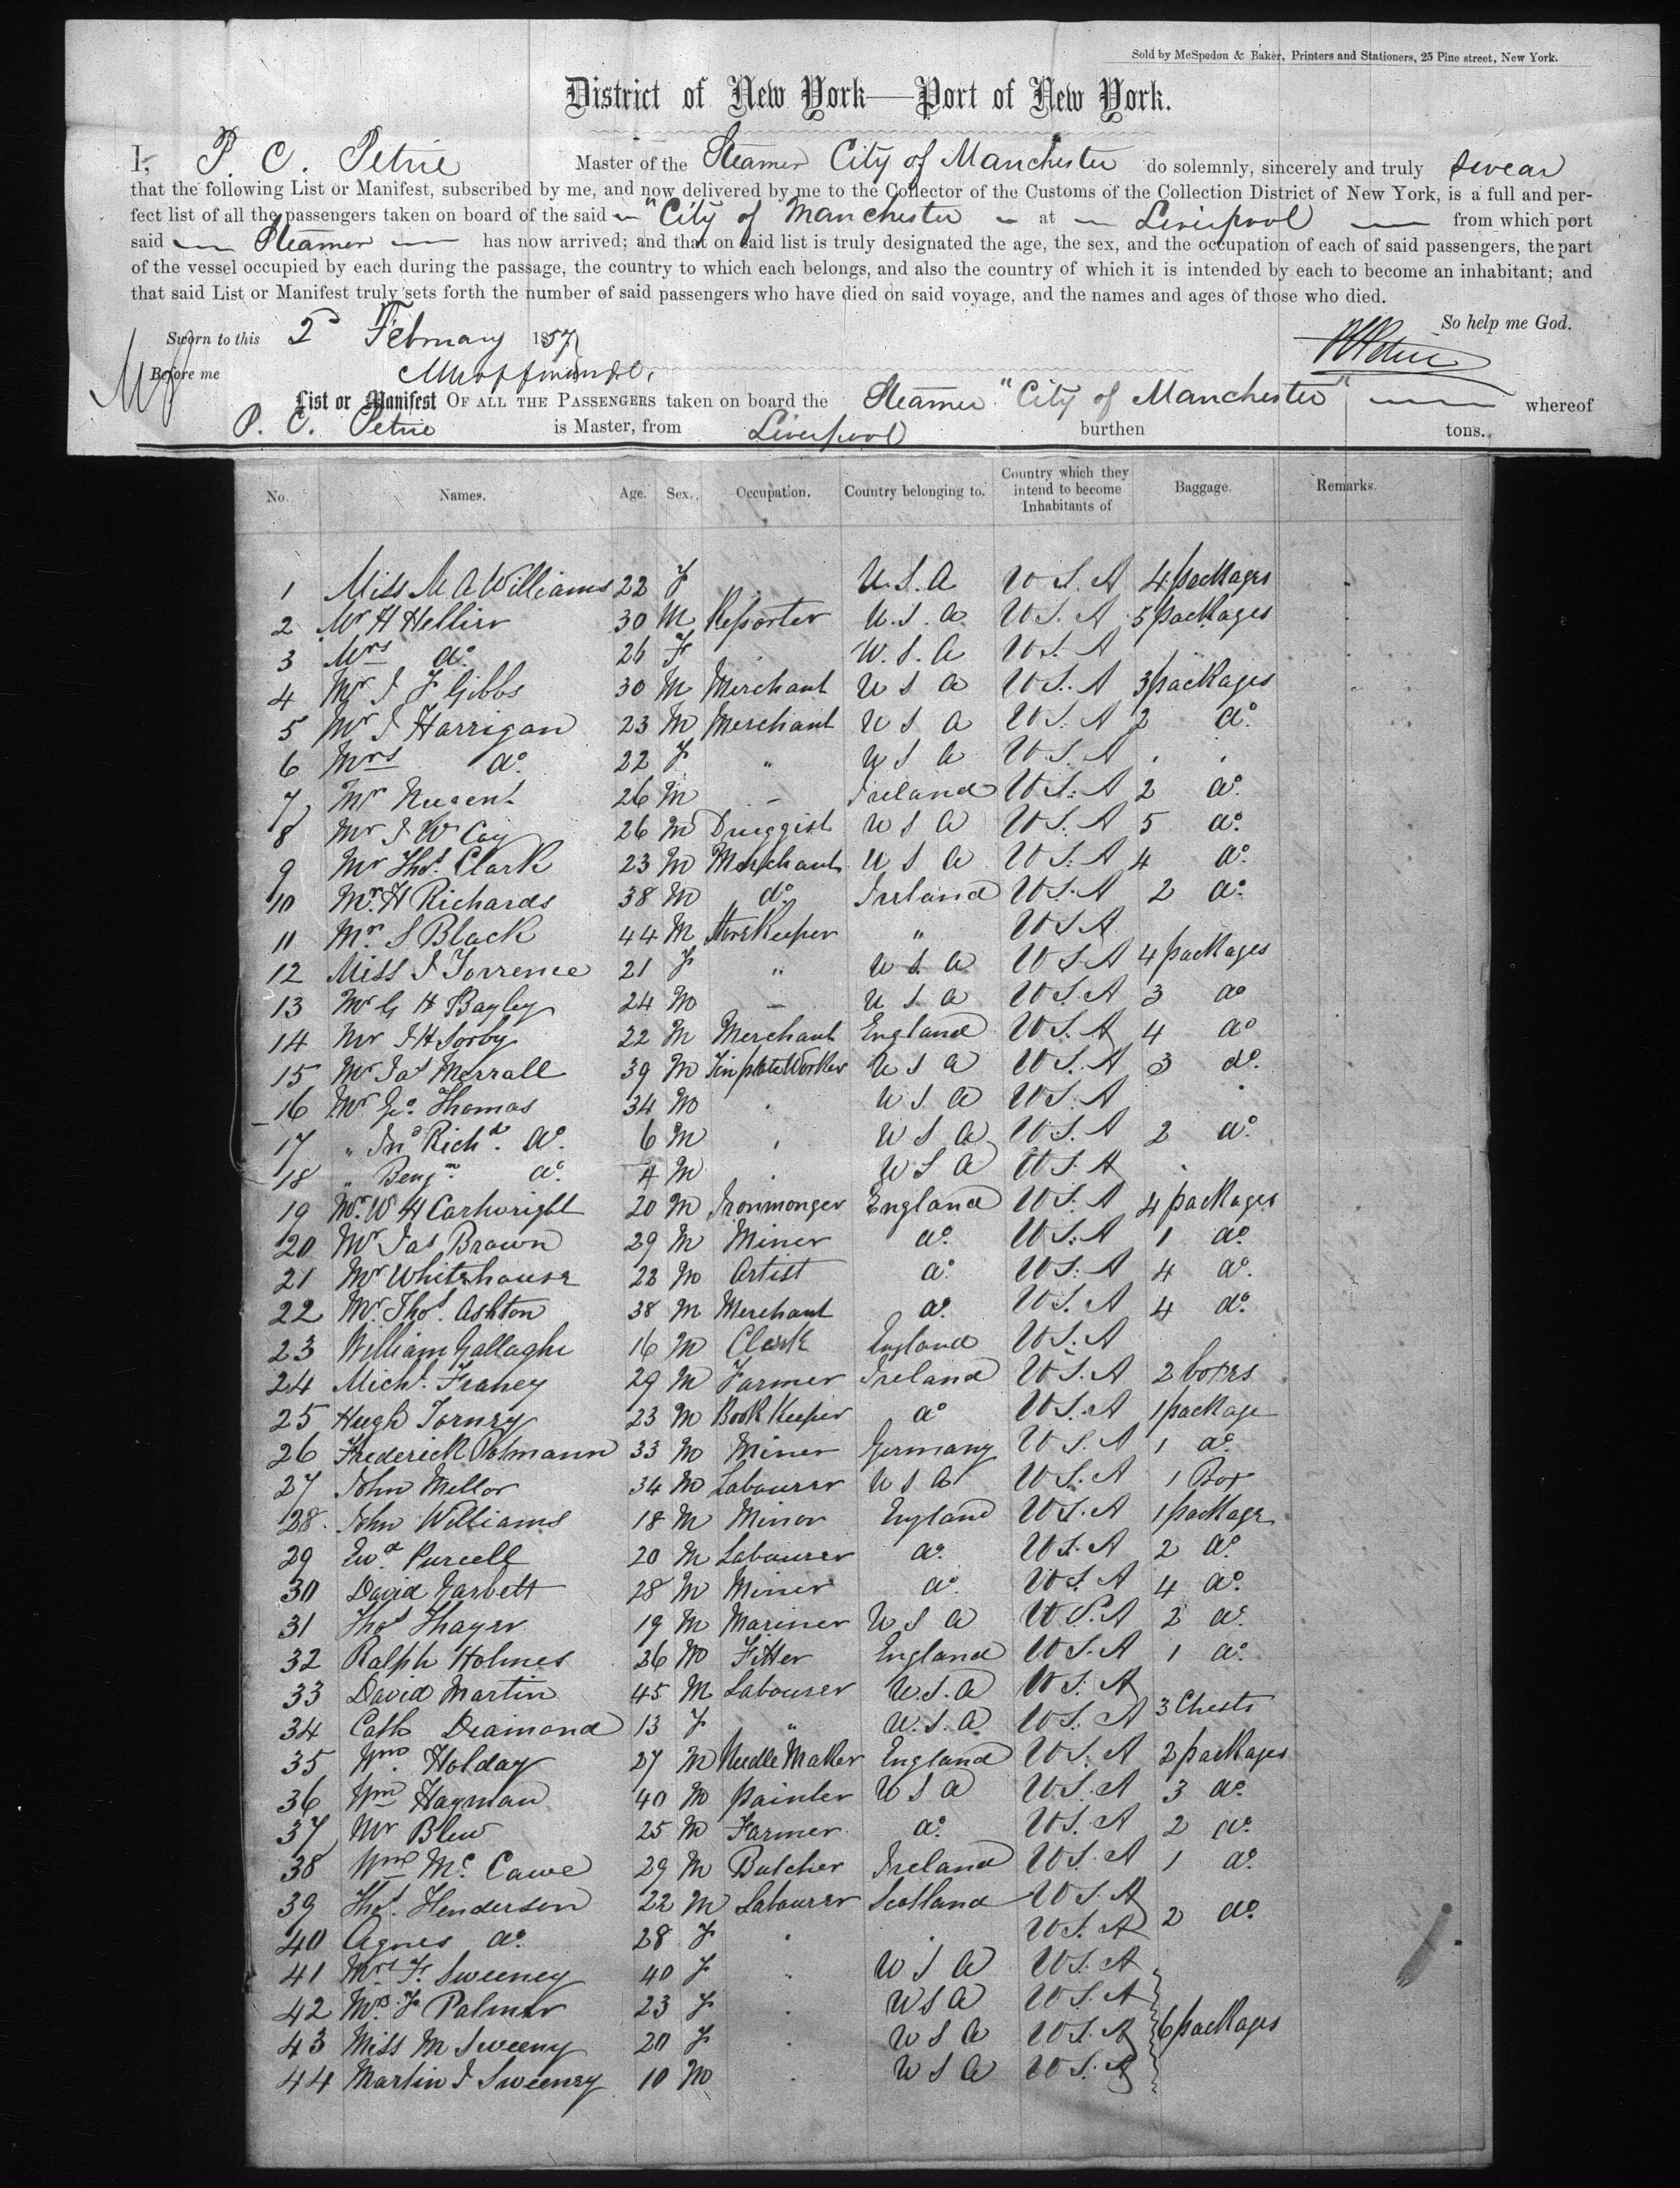 Sold by McSpedon & Baker, Printers and Stationers, 25 Pine street, New York.
District of New York—Port of New York.
I, P. C. Petrie Master of the Steamer City of Manchester do solemnly, sincerely and truly swear
that the following List or Manifest, subscribed by me, and now delivered by me to the Collector of the Customs of the Collection District of New York, is a full and per-
fect list of all the passengers taken on board of the said — "City of Manchester — at — Liverpool — from which port
said — Steamer — has now arrived; and that on said list is truly designated the age, the sex, and the occupation of each of said passengers, the part
of the vessel occupied by each during the passage, the country to which each belongs, and also the country of which it is intended by each to become an inhabitant; and
that said List or Manifest truly sets forth the number of said passengers who have died on said voyage, and the names and ages of those who died.
So help me God.
Sworn to this 2d February 1857
Before me
List or Manifest OF ALL THE PASSENGERS taken on board the Steamer "City of Manchester" — whereof
P. C. Petrie is Master, from Liverpool burthen tons.
No. Names. Age. Sex. Occupation. Country belonging to. Country which they intend to become Inhabitants of Baggage. Remarks.
1 Miss M A Williams 22 F U.S.A U S. A 4 packages
2 Mr H Hellier 30 M Reporter U.S.A U S. A 5 packages
3 Mrs do 26 F U.S.A U S. A
4 Mr J F Gibbs 30 M Merchant U S A U S. A 3 packages
5 Mr J Harrigan 23 M Merchant U S A U S. A 2 do
6 Mrs do 22 F " U S A U S. A
7 Mr Nugent 26 M – Ireland U S. A 2 do
8 Mr J W Coy 26 M Druggist U S A U S. A 5 do
9 Mr Thos. Clark 23 M Merchant U S A U S. A 4 do
10 Mr. H Richards 38 M do Ireland U S. A 2 do
11 Mr. S Black 44 M Storekeeper " U S A
12 Miss J Torrence 21 F " U S A U S. A 4 packages
13 Mr G H Bayley 24 M – U S A U S. A 3 do
14 Mr J H Sorby 22 M Merchant England U S. A 4 do
15 Mr Jas Merrall 39 M Tin plate Worker U S A U S. A 3 do
16 Mr Geo. Thomas 34 M U S A U S. A
17 " Jno Richd. do 6 M U S A U S. A 2 do
18 " Benjn. do 4 M U S A U S. A
19 Mr. W H Cartwright 20 M Ironmonger England U S. A 4 packages
20 Mr Jas Brown 29 M Miner do U S. A 1 do
21 Mr Whitehouse 22 M Artist do U S. A 4 do
22 Mr. Thos. Ashton 38 M Merchant do U S. A 4 do
23 William Gallaghe 16 M Clerk England U S. A
24 Michl. Franey 29 M Farmer Ireland U S. A 2 boxes
25 Hugh Torney 23 M Book Keeper do U S. A 1 package
26 Frederick Polmann 33 M Miner Germany U S. A 1 do
27 John Mellor 34 M Labourer U S A U S. A 1 Box
28 John Williams 18 M Minor England U S. A 1 package
29 Ewd Purcell 20 M Labourer do U S. A 2 do
30 David Garbett 28 M Miner do U S. A 4 do
31 Thos Thayer 19 M Mariner U S A U S. A 2 do
32 Ralph Holmes 26 M Fitter England U S. A 1 do
33 David Martin 45 M Labourer U.S.A U S. A
34 Cath Diamond 13 F " U.S.A U S. A 3 Chests
35 Wm. Holday 27 M Needle Maker England U S. A 2 packages
36 Wm Hayman 40 M painter U S A U S. A 3 do
37 Mr Blew 25 M Farmer do U S. A 2 do
38 Wm Mc. Cawe 29 M Butcher Ireland U S. A 1 do
39 Thos. Henderson 22 M Labourer Scotland U S. A
40 Agnes do 28 F U S. A 2 do
41 Mrs F. Sweeney 40 F U S A U S. A
42 Mrs. F Palmer 23 F U S A U S. A
43 Miss M Sweeny 20 F U S A U S. A 6 packages
44 Martin J Sweeney 10 M U S A U S. A